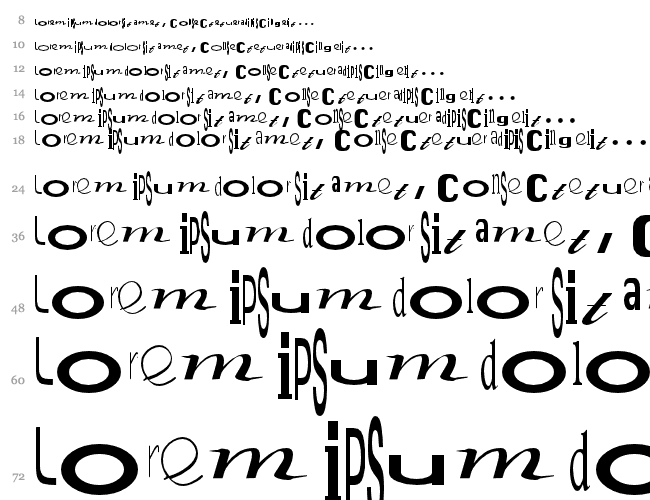 8 Lorem ipSum dolor Sit amet, ConSe CtetueradipiSCingelit...
10 Lorem ipSum dolor Sit amet, ConSe CtetueradipiSCingelit...
12 Lorem ipSum dolor Sit amet, ConSe CtetueradipiSCingelit...
14 Lorem ipSum dolor Sit amet, ConSe CtetueradipiSCingelit...
16 Lorem ipSum dolor Sit amet, ConSe CtetueradipiSCingelit...
18 Lorem ipSum dolor Sit amet, ConSe CtetueradipiSCingelit...
24 Lorem ipSum dolor Sit amet, ConSe Ctetuera
36 Lorem ipSum dolor Sit amet, C
48 Lorem ipSum dolor Sit a
60 Lorem ipSum dolo
72 Lorem ipSum do